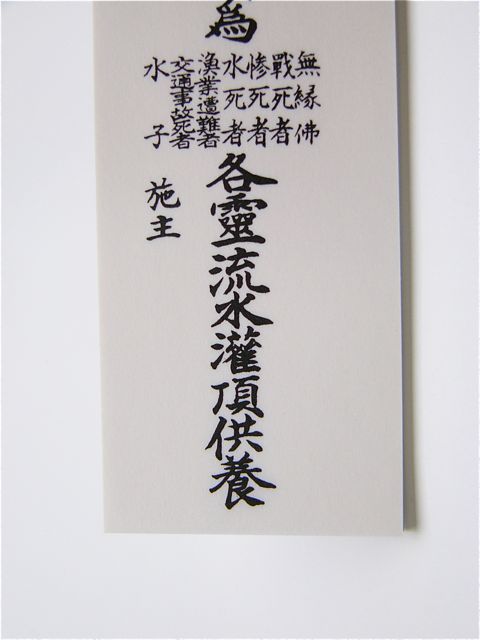 為
無縁佛
戰死者
惨死者
水死者
漁業遭難者
交通事故死者
水子
各靈流水灌頂供養
施主